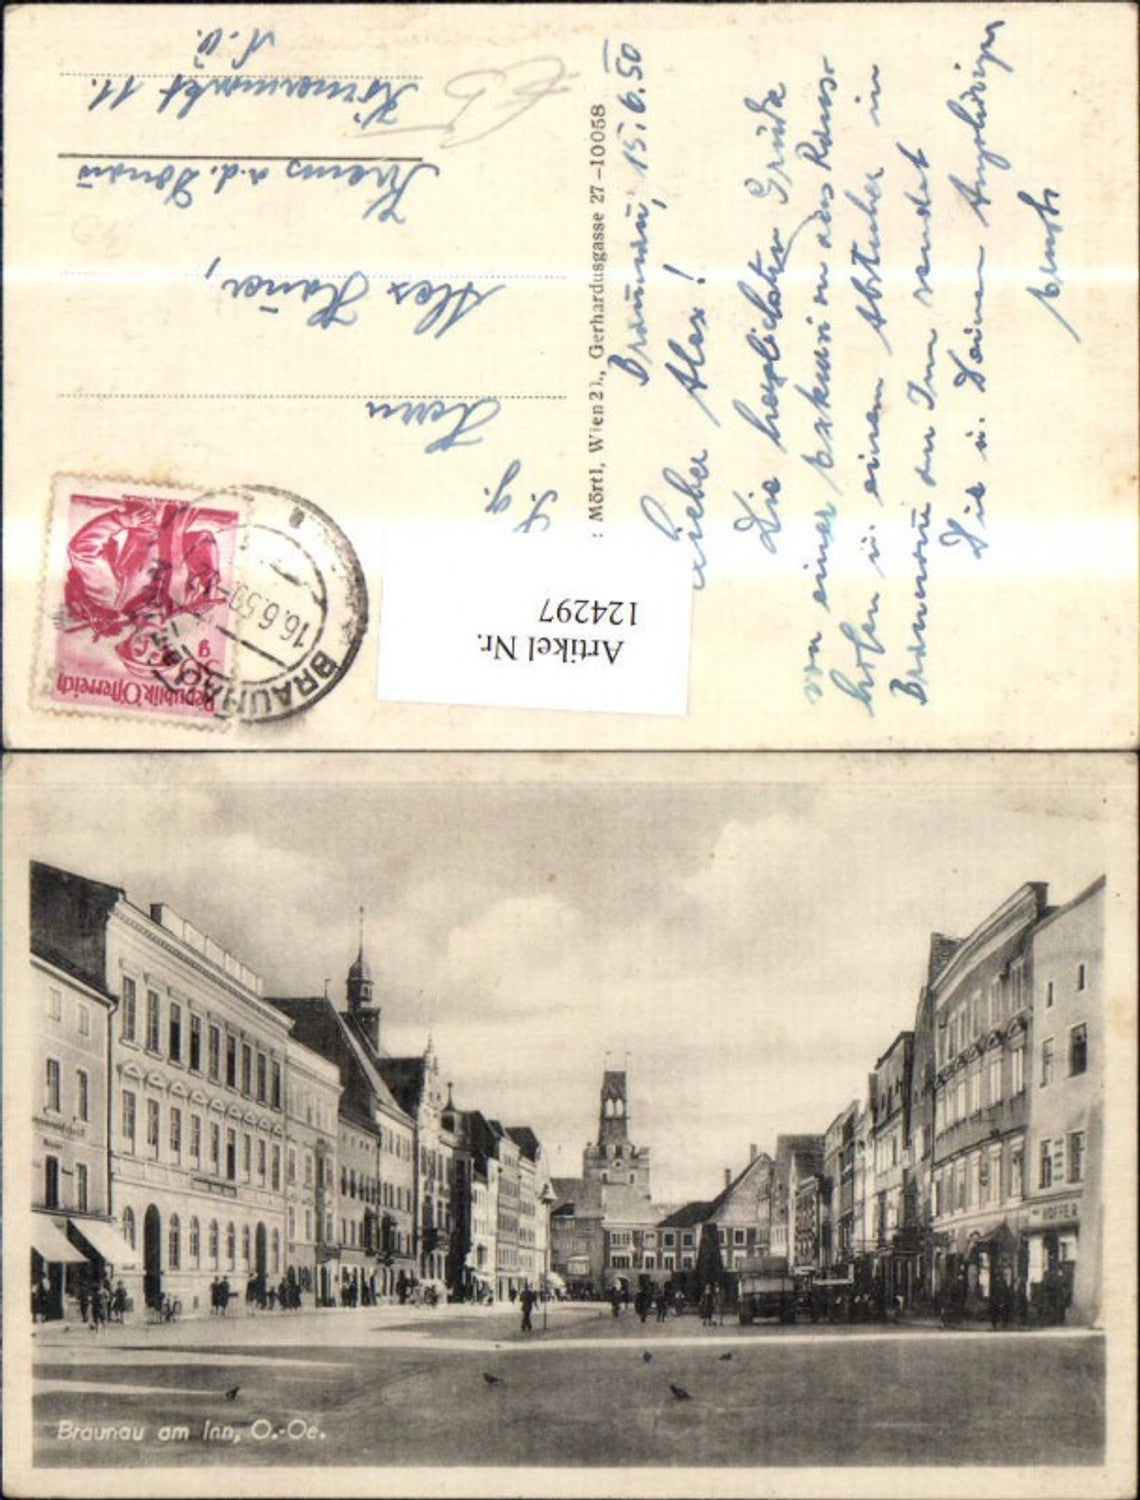 Braunau, 15.6.50
Lieber Alex!
Die herzlichsten Grüße
von einer Exkursion aus Rans-
hofen u. einem Abstecher in
Braunau am Inn sendet
Die u. Deinen Angehörigen
: Mörtl, Wien 21., Gerhardusgasse 27 –10058
S. g.
Herrn
Alex
Krems a.d. Donau
Körnermarkt 11.
N. Ö.
Republik Österreich
g
BRAUNAU
16.6.50
Artikel Nr.
124297
HOFFER
Braunau am Inn, O.-Oe.